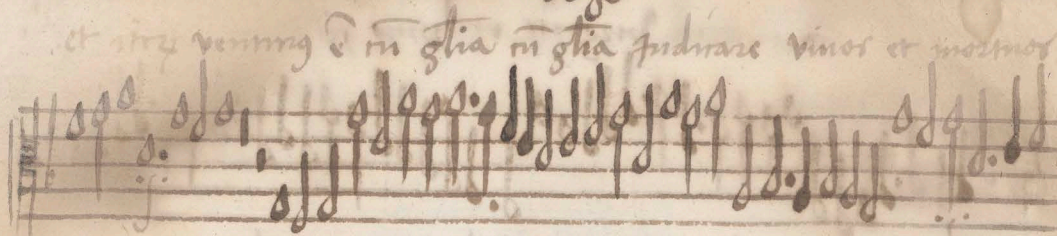 et iterū venturus ē cū gl̄ia cū gl̄ia Iudicare viuos et mortuos